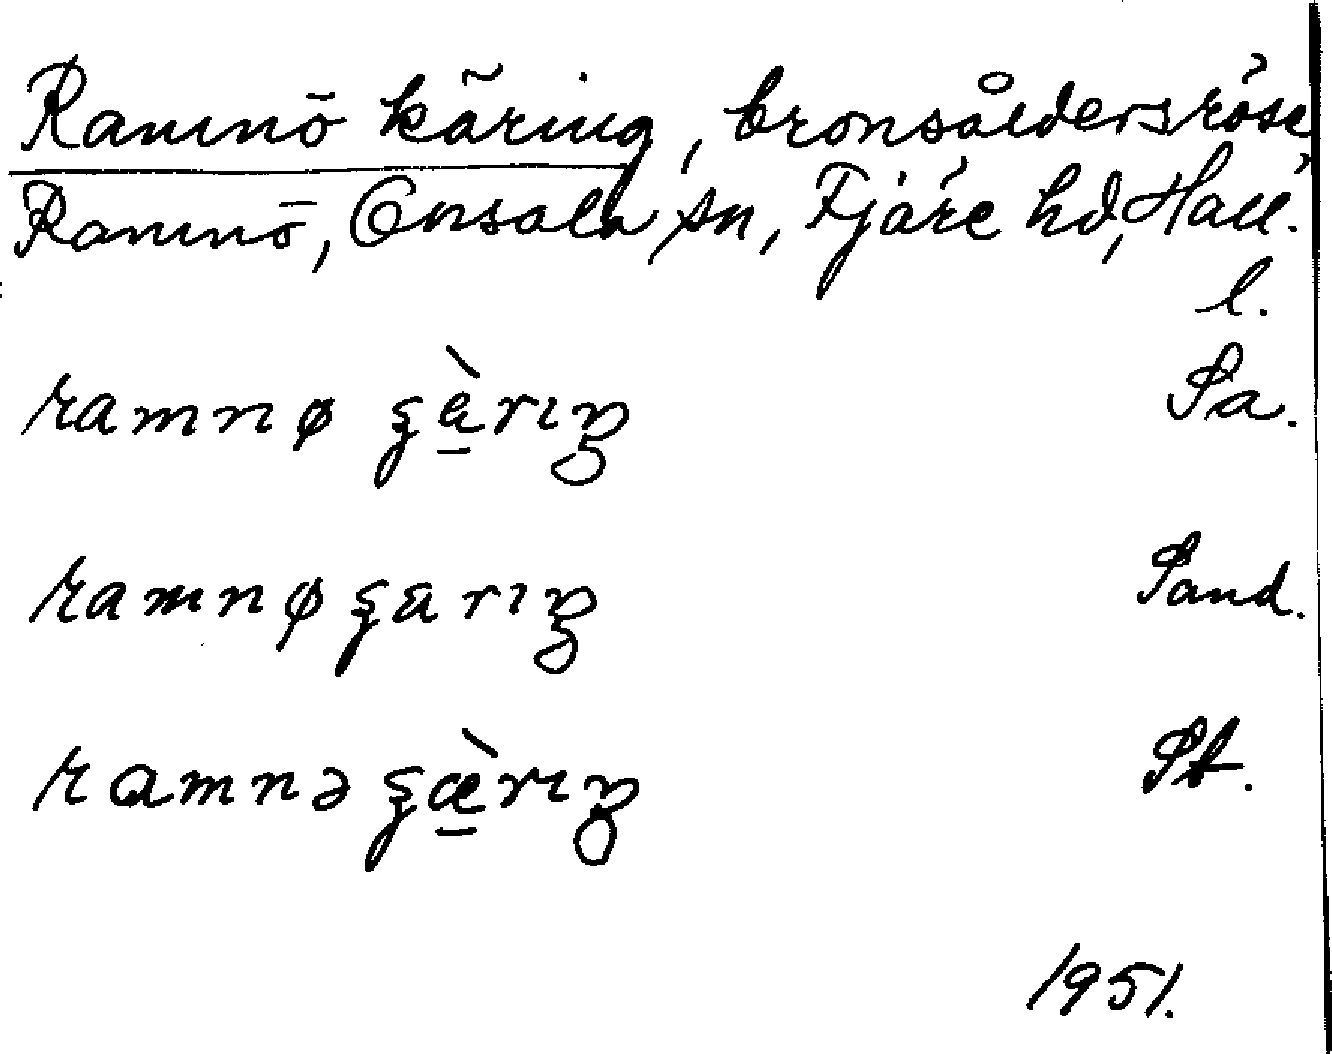 Ramnö käring, bronsåldersröse
Ramnö, Onsala sn, Fjäre hd, Hall.
l.
ramnø ʂèriŋ Pa.
ramnøʂariŋ Sand.
ramnə ʂæ̀riŋ St.
1951.